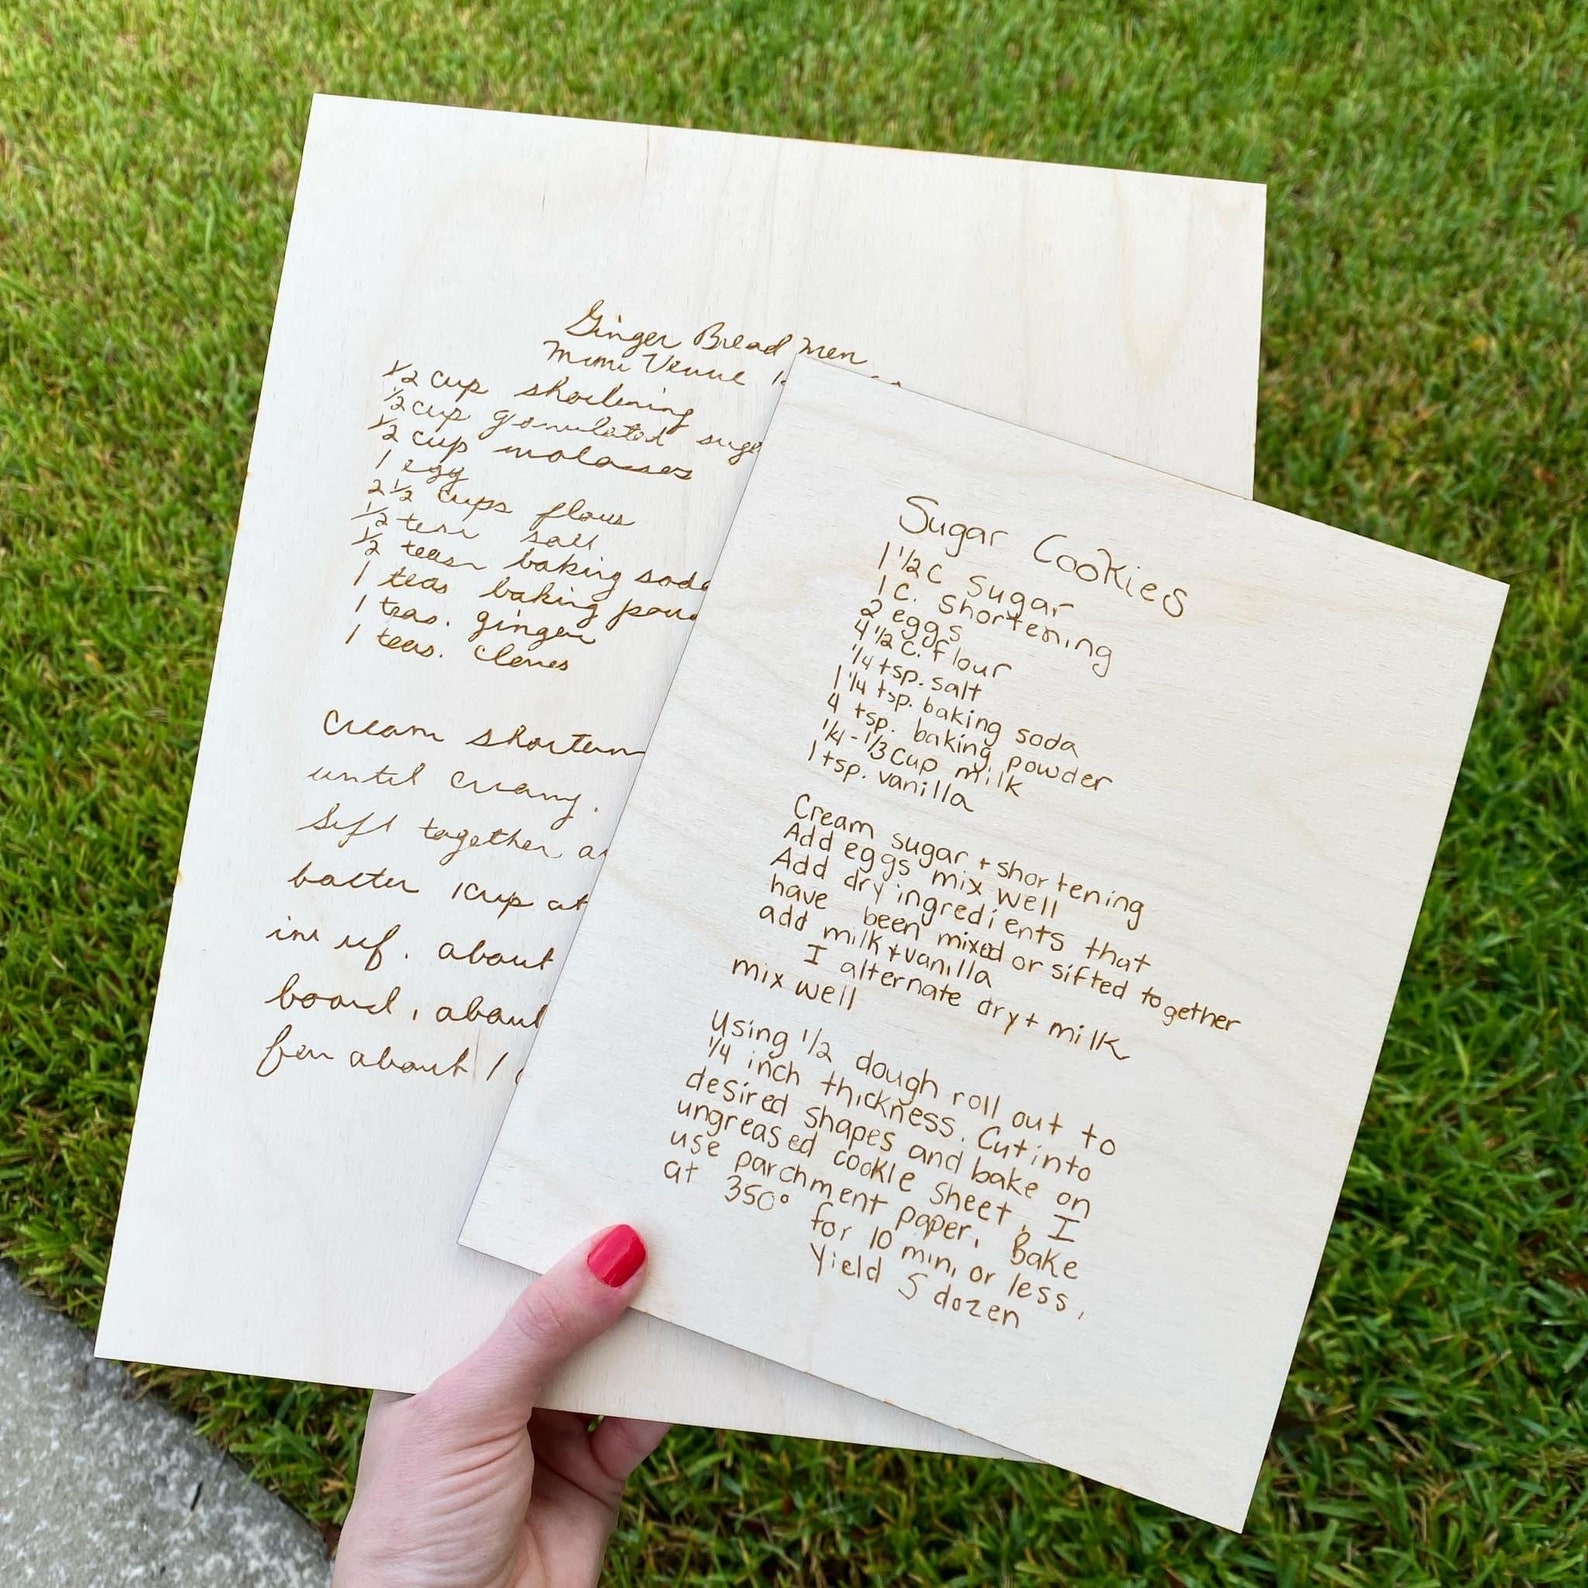 Ginger Bread Men
Mimi
1/2 cup shortening
1/2 cup granulated suga
1/2 cup molasses
1 egg
2 1/2 cups flour
1/2 teas salt
1/2 teasn baking soda
1 teas baking pow
1 teas. ginger
1 teas. cloves
Cream shorten
until creamy.
Sift together a
batter 1 cup at
about
board, about
for about 1
Sugar Cookies
1 1/2 C Sugar
1 C. Shortening
2 eggs
4 1/2 C. flour
1/4 tsp. salt
1 1/4 tsp. baking soda
4 tsp. baking powder
1/4 - 1/3 Cup milk
1 tsp. vanilla
Cream sugar + shortening
Add eggs mix well
Add dry ingredients that
have been mixed or sifted together
add milk + vanilla
I alternate dry + milk
mix well
Using 1/2 dough roll out to
1/4 inch thickness. Cut into
desired shapes and bake on
ungreased cookie sheet, I
use parchment paper. Bake
at 350° for 10 min, or less,
Yield 5 dozen